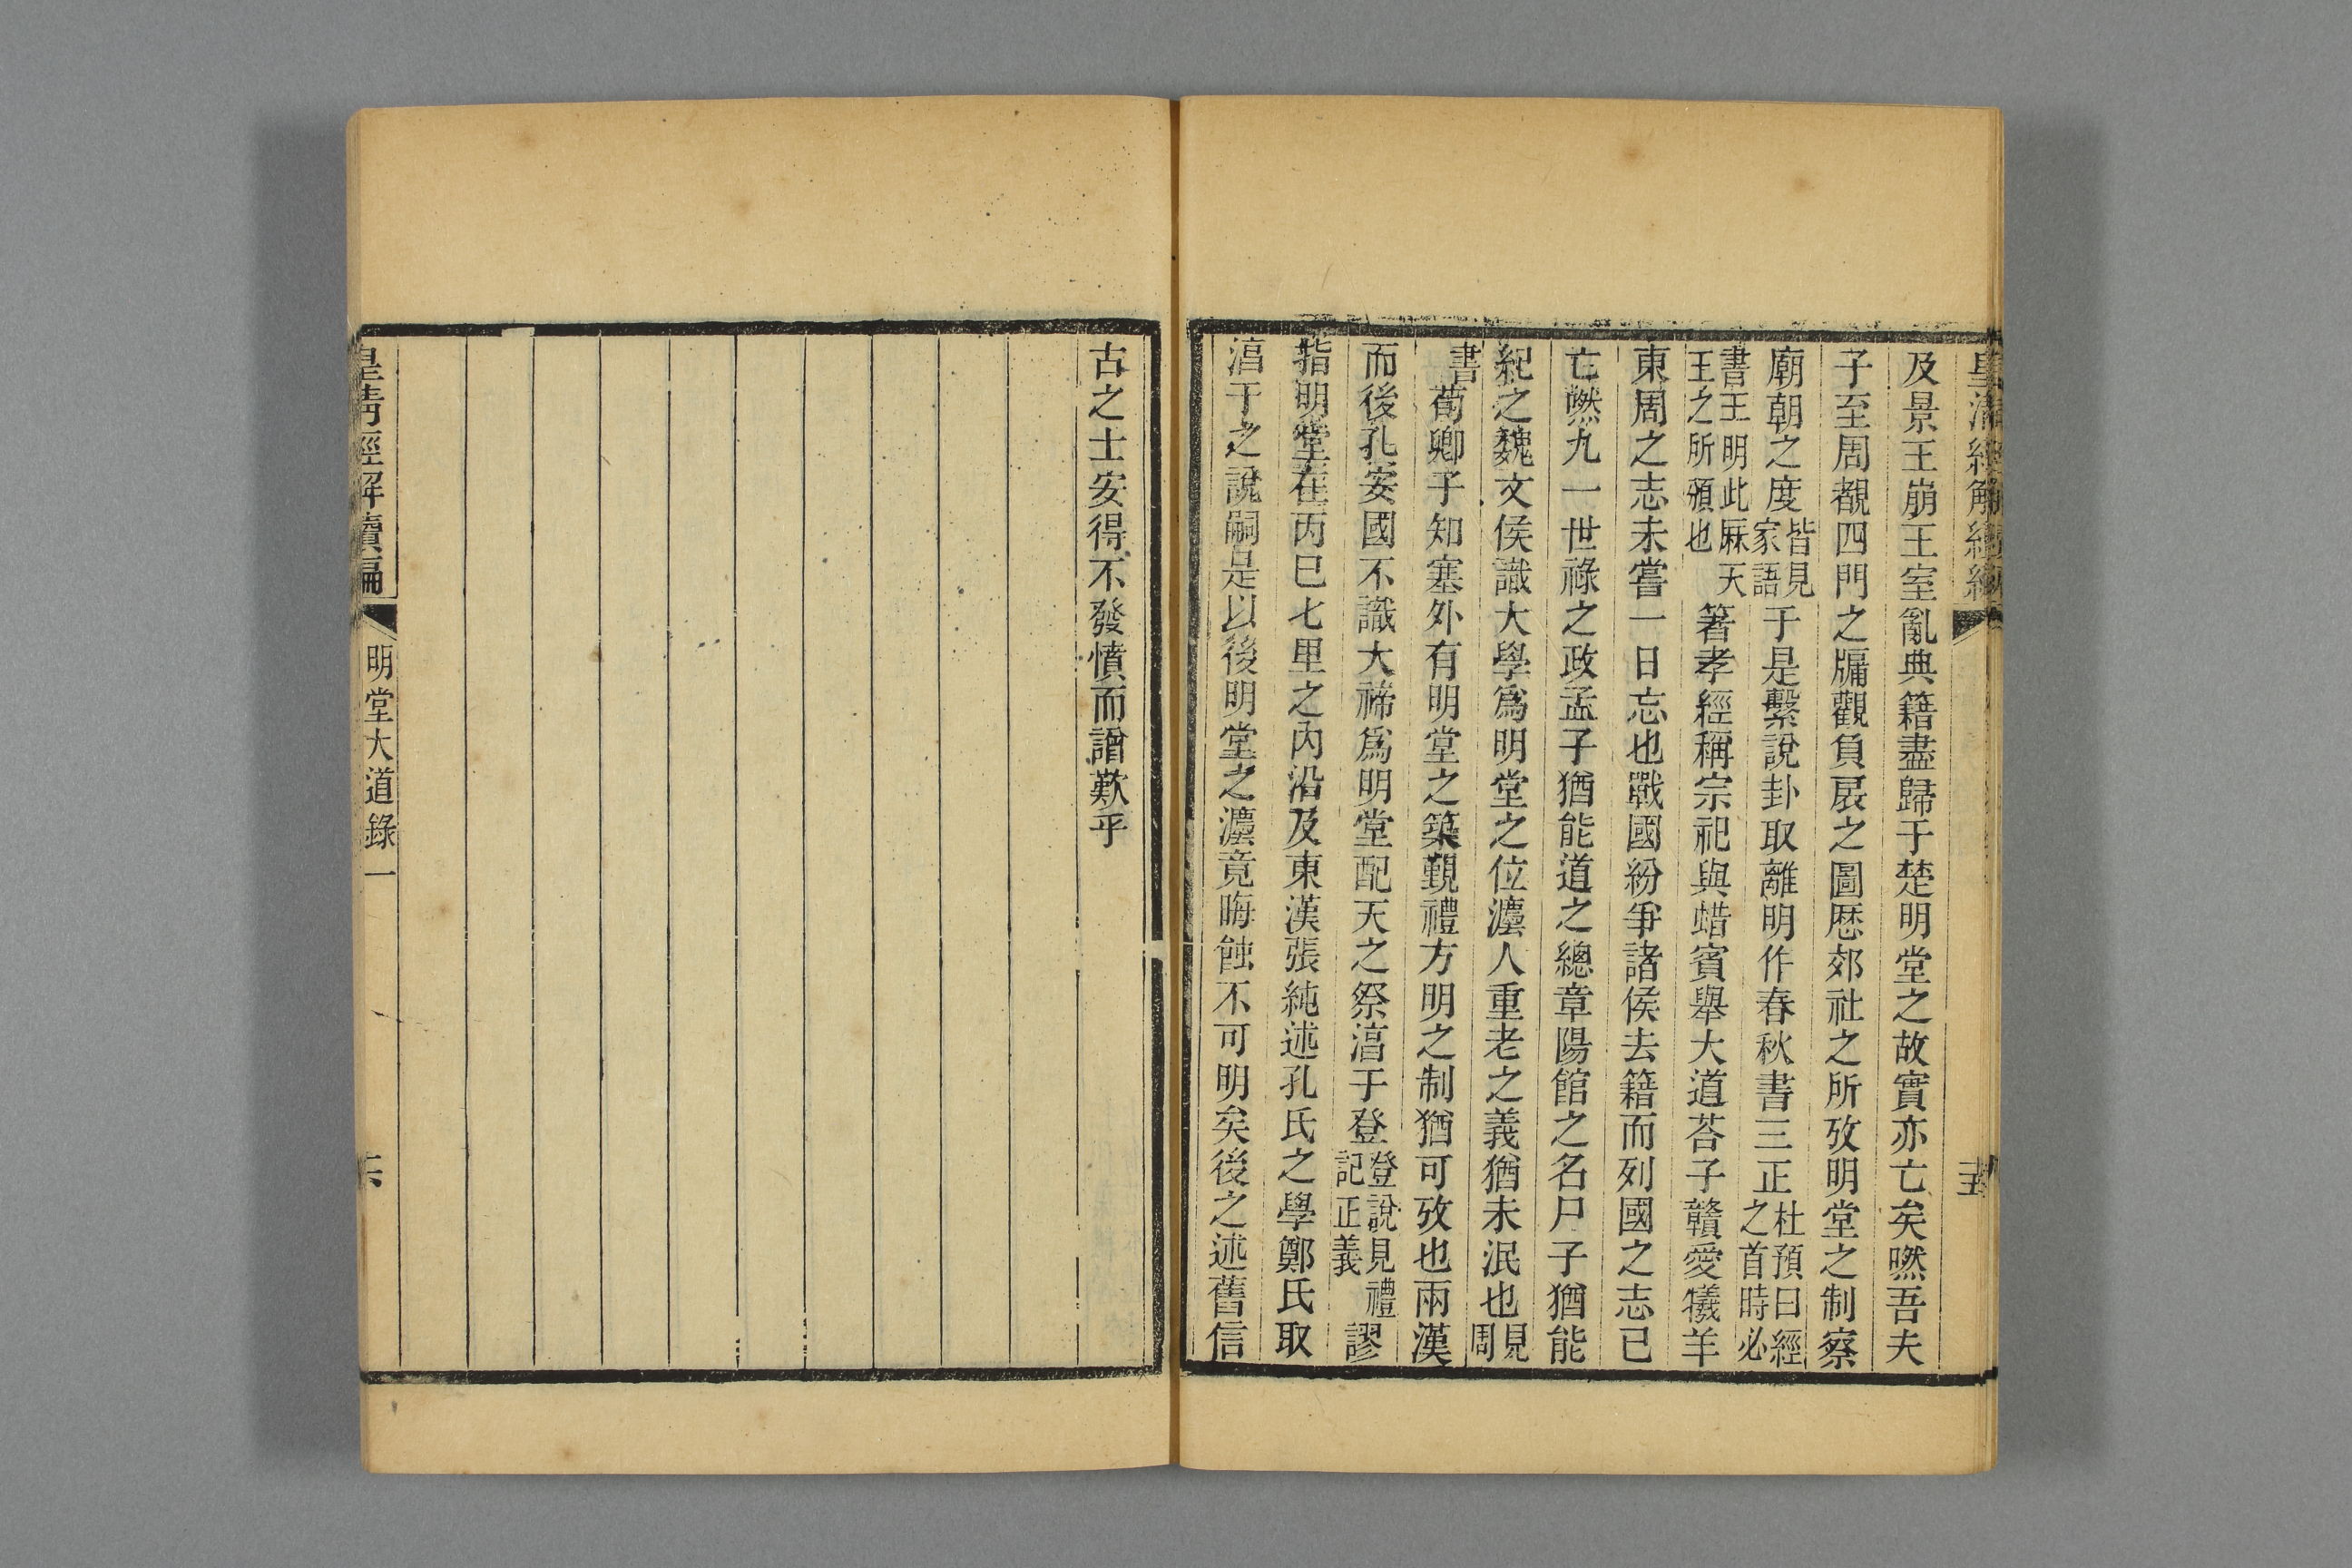 皇清經解續編
及景王崩王室亂典籍盡歸于楚明堂之故實亦亡矣㬗吾夫
子至周覩四門之牖觀負扆之圖歷郊社之所攷明堂之制察
廟朝之度皆見家語于是繫說卦取離明作春秋書三正杜預曰經之首時必
書王明此厤天王之所頒也著孝經稱宗祀與蜡賓舉大道荅子贛愛犧羊
東周之志未嘗一日忘也戰國紛爭諸侯去籍而列國之志已
亡㬗九一世祿之政孟子猶能道之總章陽館之名尸子猶能
紀之魏文侯識大學爲明堂之位灋人重老之義猶未泯也見周
書荀卿子知塞外有明堂之築覲禮方明之制猶可攷也兩漢
而後孔安國不識大禘爲明堂配天之祭湻于登登說見禮記正義謬
指明堂在丙巳七里之內沿及東漢張純述孔氏之學鄭氏取
湻于之說嗣是以後明堂之灋竟晦蝕不可明矣後之述舊信
古之士安得不發憤而譄歎乎
皇清經解續編
明堂大道錄一